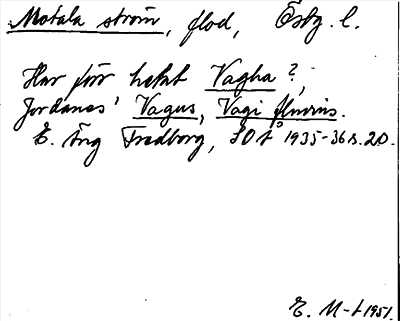 Motala ström, flod, Östg. l.
Har förr hetat Vagha?,
Jordanes' Vagus, Vagi fluvius.
E. Äng Fredborg, SOÅ 1935-36 s. 20.
E. M-t 1951.